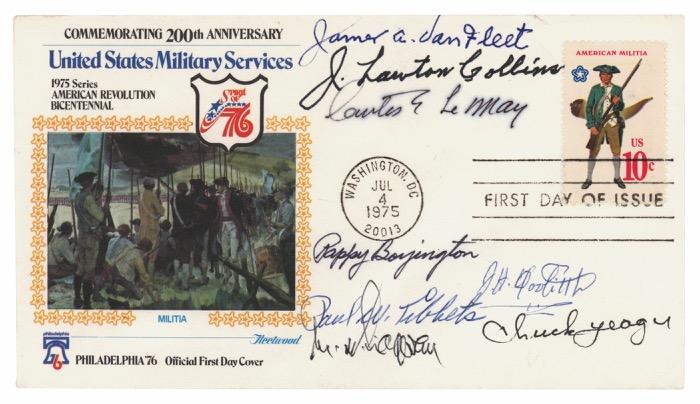 COMMEMORATING 200th ANNIVERSARY
United States Military Services
1975 Series
AMERICAN REVOLUTION
BICENTENNIAL
SPIRIT OF
'76
James A. Van Fleet
J. Lawton Collins
Curtis E LeMay
AMERICAN MILITIA
US
10c
WASHINGTON, DC
JUL
4
1975
20013
FIRST DAY OF ISSUE
Pappy Boyington
J.H. Doolittle
Paul W. Tibbets
Chuck Yeager
MILITIA
Fleetwood
philadelphia
76
PHILADELPHIA '76 Official First Day Cover